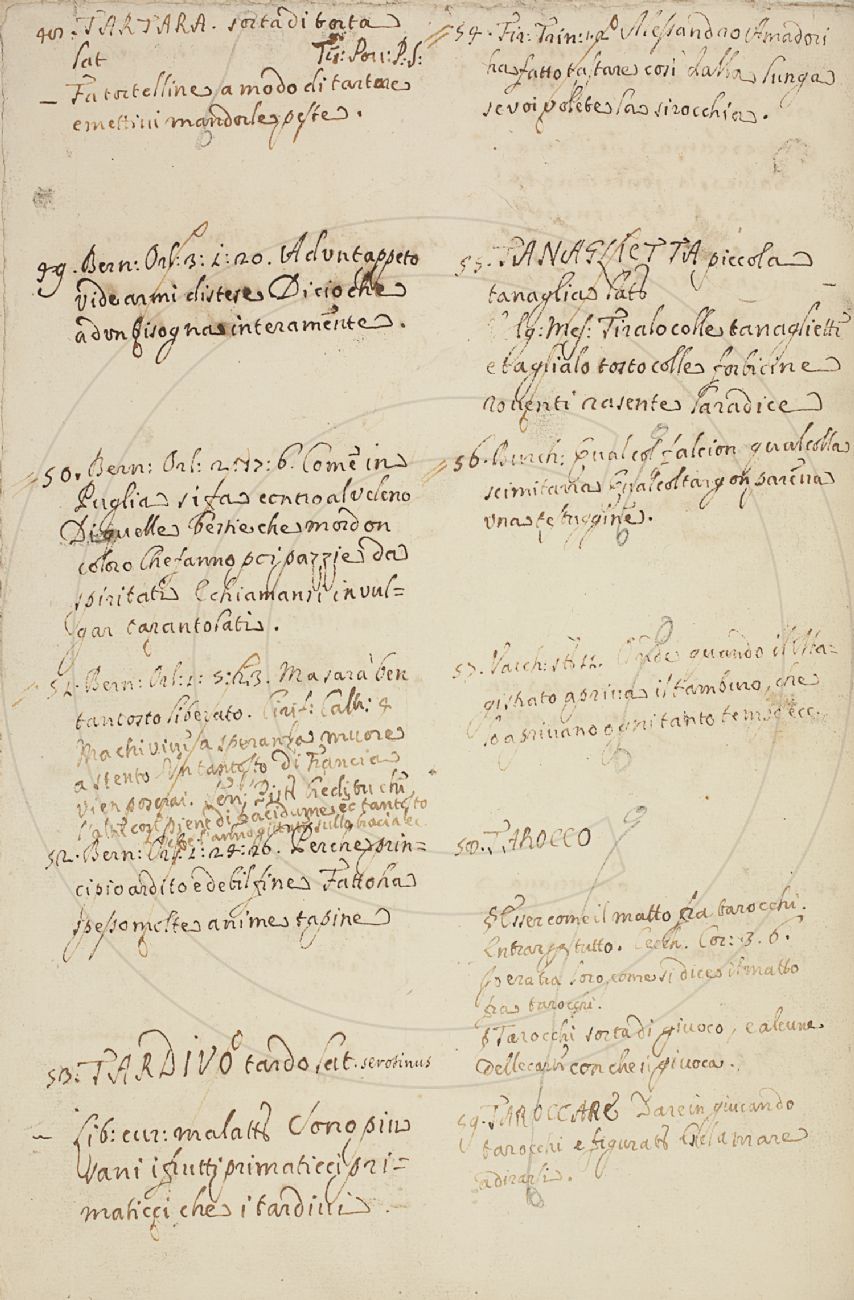 48. TARTARA. sorta di torta
lat Fir: Pov: P.S:
– Fa tortelline a modo di tartare
e mettivi mandorle peste.
49. Bern: Orl: 3: 1: 20. Ad vn tappeto
vide armi distese Di cio che
ad vn bisogna interamente.
50. Bern: Orl: 2: 17: 6. Come in
Puglia si fa contro al veleno
Di quelle bestie che mordon
coloro Che fanno poi pazzie da
spiritati E chiamansi in vul=
gar tarantolati.
51. Bern: Orl: 1: 5: Ma sarà ben
tantosto liberato. Cirif: Calv: 4
Ma chi vive a speranza muore
a stento Vn tantosto di Francia
vien poscia.
52. Bern: Orl: 1: 24: 26. Perche prin=
cipio ardito e debil fine Fatto ha
spesso molte anime tapine
53. TARDIVO tardo Lat. serotinus
– Lib: cur: malatt Sono piu
vani i frutti primaticci pri=
maticci che i tardivi.
54. Fir: Trin: 1. 2 Alessandro Amadori
ha fatto tastare cosi dalla lunga
se voi volete la sirocchia.
55. TANAGLIETTA piccola
tanaglia Lat
lg: Mes: Tiralo colle tanagliette
e taglialo tosto colle forbicine
roventi rasente la radice
56. Burch: Qual col falcion qual colla
scimitarra Qual col targon pareva
vna testuggine.
57. Varch: st: 12. Onde quando il Ma=
gistrato apriva il tamburo, che
lo aprivano ogni tanto tempo ecc.
58. TAROCCO
§ Esser come il matto fra tarocchi.
Entrar p tutto. Cecch. Cor: 3. 6.
loro, come si dice il matto
fra tarocchi.
§ Tarocchi sorta di giuoco, e alcune
delle carte con che si giuoca.
59. TAROCCARE Dare in giucando
tarocchi e figurat Gridare
adirarsi.